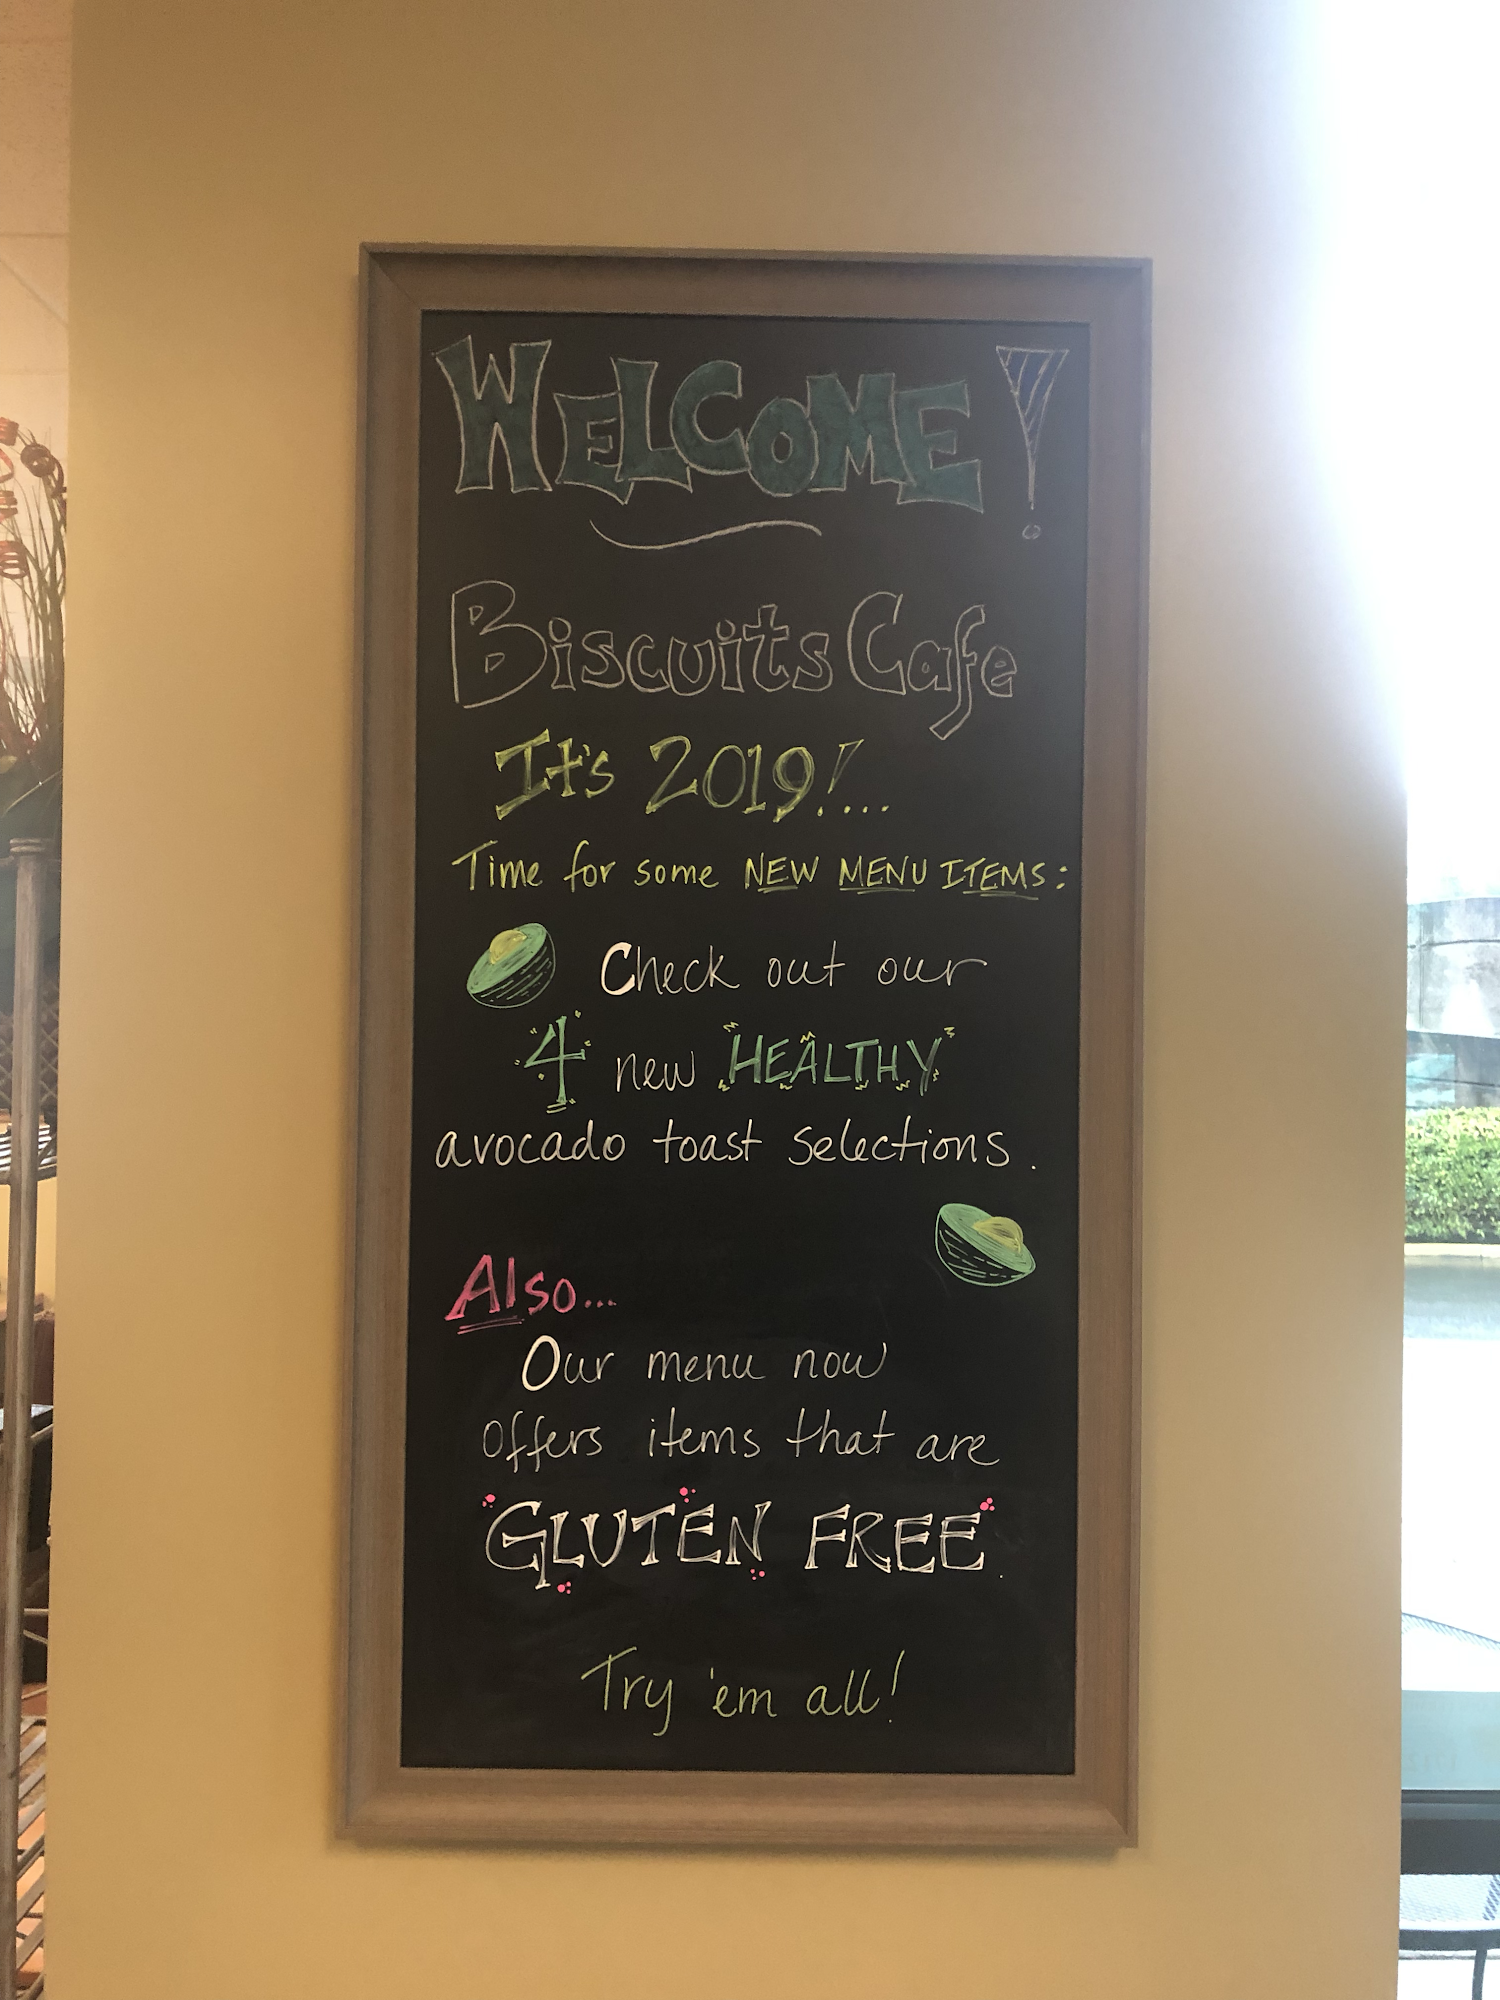 WELCOME!
Biscuits Cafe
It's 2019!...
Time for some NEW MENU ITEMS:
Check out our
4 new HEALTHY
avocado toast selections.
Also...
Our menu now
offers items that are
GLUTEN FREE.
Try 'em all!